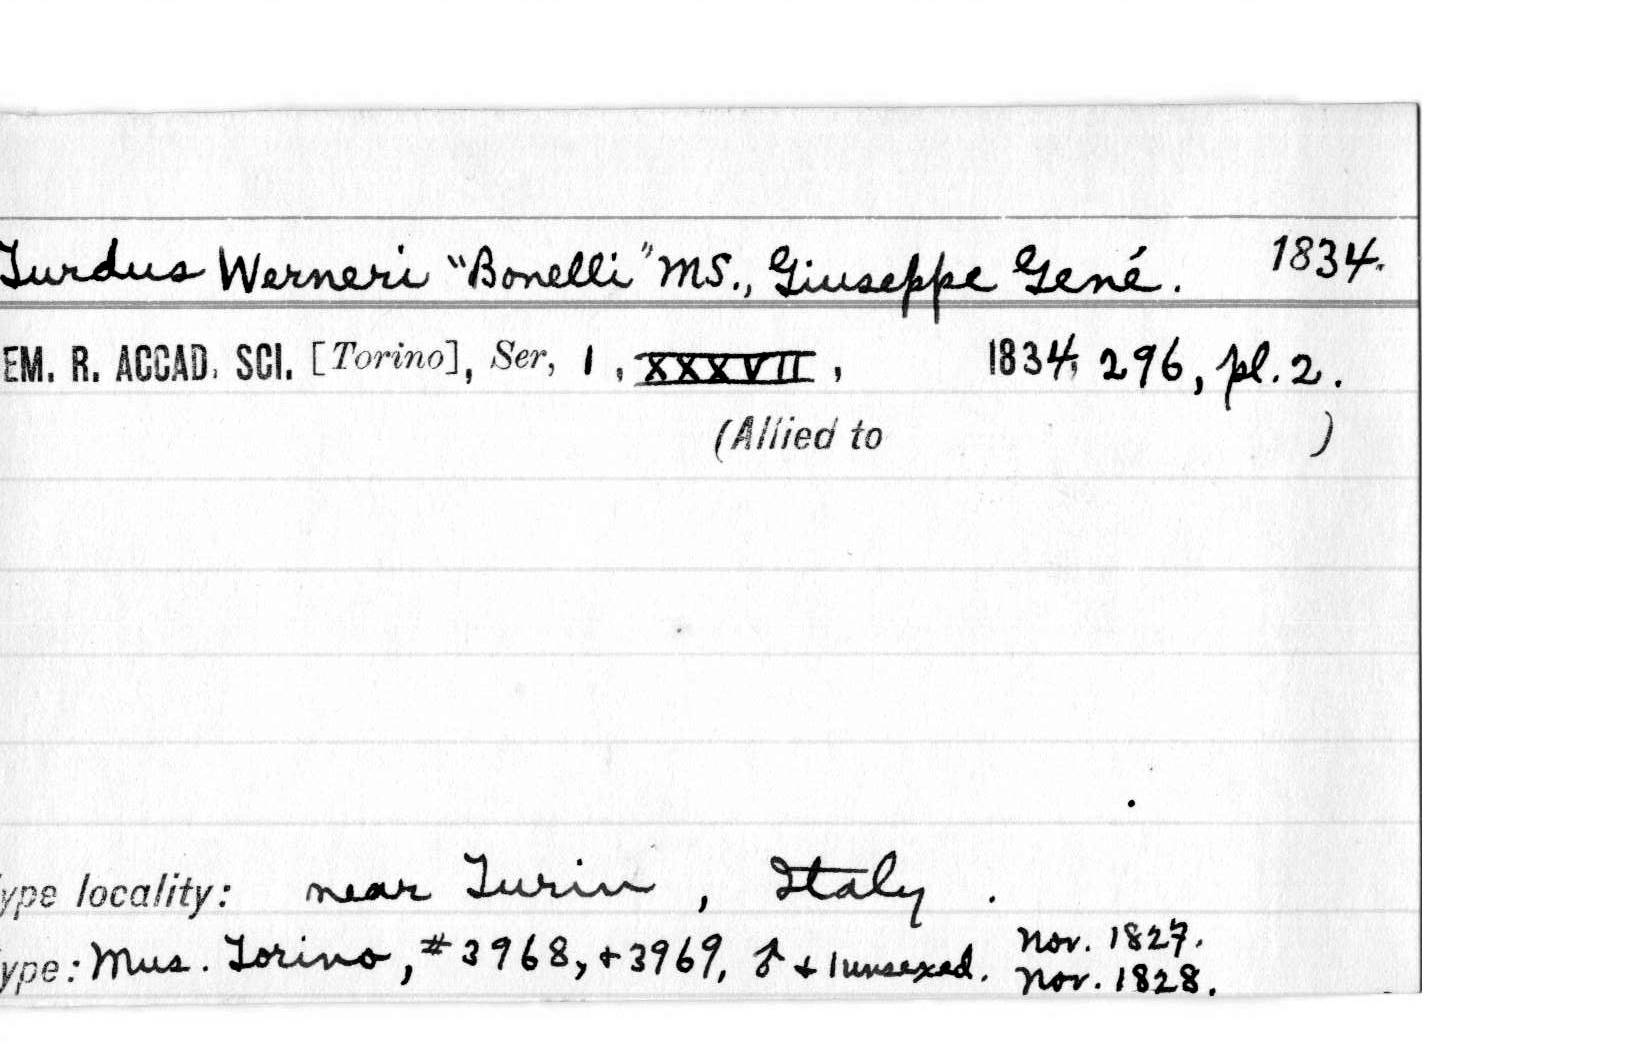 Turdus Werneri "Bonelli" MS., Giuseppe Gené. 1834.
EM. R. ACCAD. SCI. [Torino], Ser, 1, XXXVII, 1834, 296, pl. 2.
(Allied to )
ype locality: near Turin, Italy.
ype: Mus. Torino, #3968, + 3969, ♂ + 1 unsexed. Nov. 1827.
Nov. 1828.